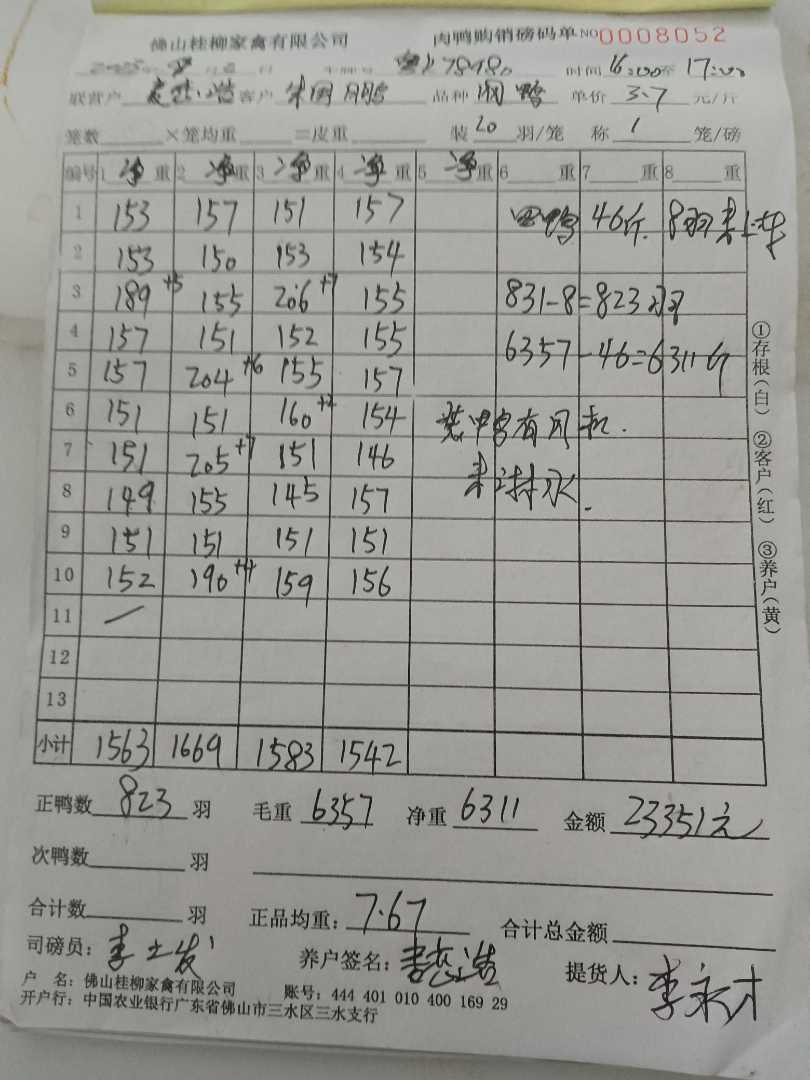 佛山桂柳家禽有限公司 肉鸭购销磅码单 NO 0008052
时间 16:00 至 17:00
联营户 客户 品种 鸭 单价 3.7 元/斤
笼数 ×笼均重 =皮重 装 20 羽/笼 称 1 笼/磅
编号 1 净 重 2 净 重 3 净 重 4 净 重 5 净 重 6 重 7 重 8 重
1 153 157 151 157 鸭 46斤. 8羽未上车
2 153 150 153 154
3 189+5 155 206+7 155 831-8=823羽
4 157 151 152 155 6357-46=6311斤
5 157 204+6 155 157
6 151 151 160+2 154
7 151 205+7 151 146
8 149 155 145 157
9 151 151 151 151
10 152 190+4 159 156
11 一
12
13
小计 1563 1669 1583 1542
正鸭数 823 羽 毛重 6357 净重 6311 金额 23351元
次鸭数 羽
合计数 羽 正品均重: 7.67 合计总金额
司磅员: 养户签名: 提货人: 李永才
户 名: 佛山桂柳家禽有限公司 账号: 444 401 010 400 169 29
开户行: 中国农业银行广东省佛山市三水区三水支行
①存根(白) ②客户(红) ③养户(黄)